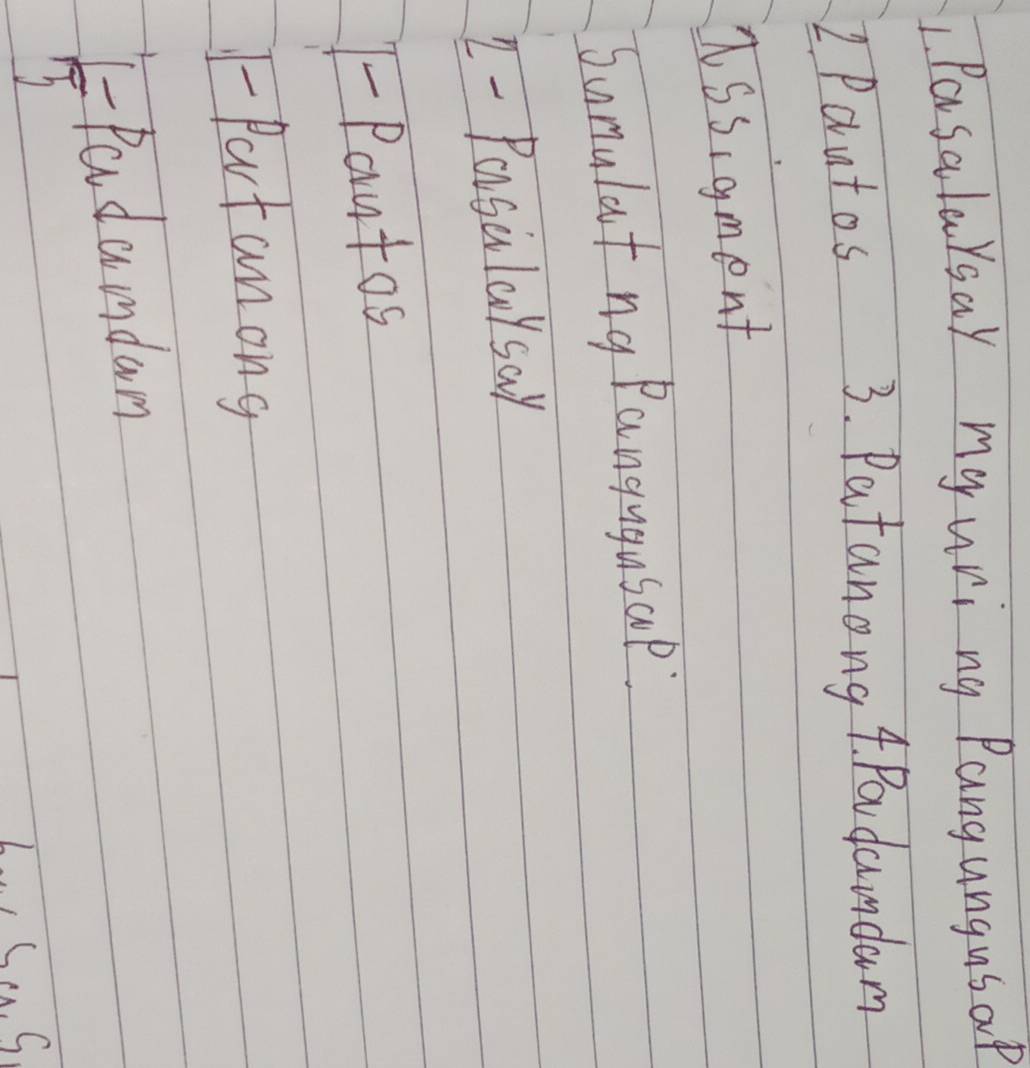 1. Pasalaysay mg uri ng Pangungusap
2 Pautos 3. Patanong 4. Padamdam
Assigment
Sumulat ng Pangungusap.
2 - Pasalaysay
1 - Pautos
1 - Patanong
1 - Padamdam
5